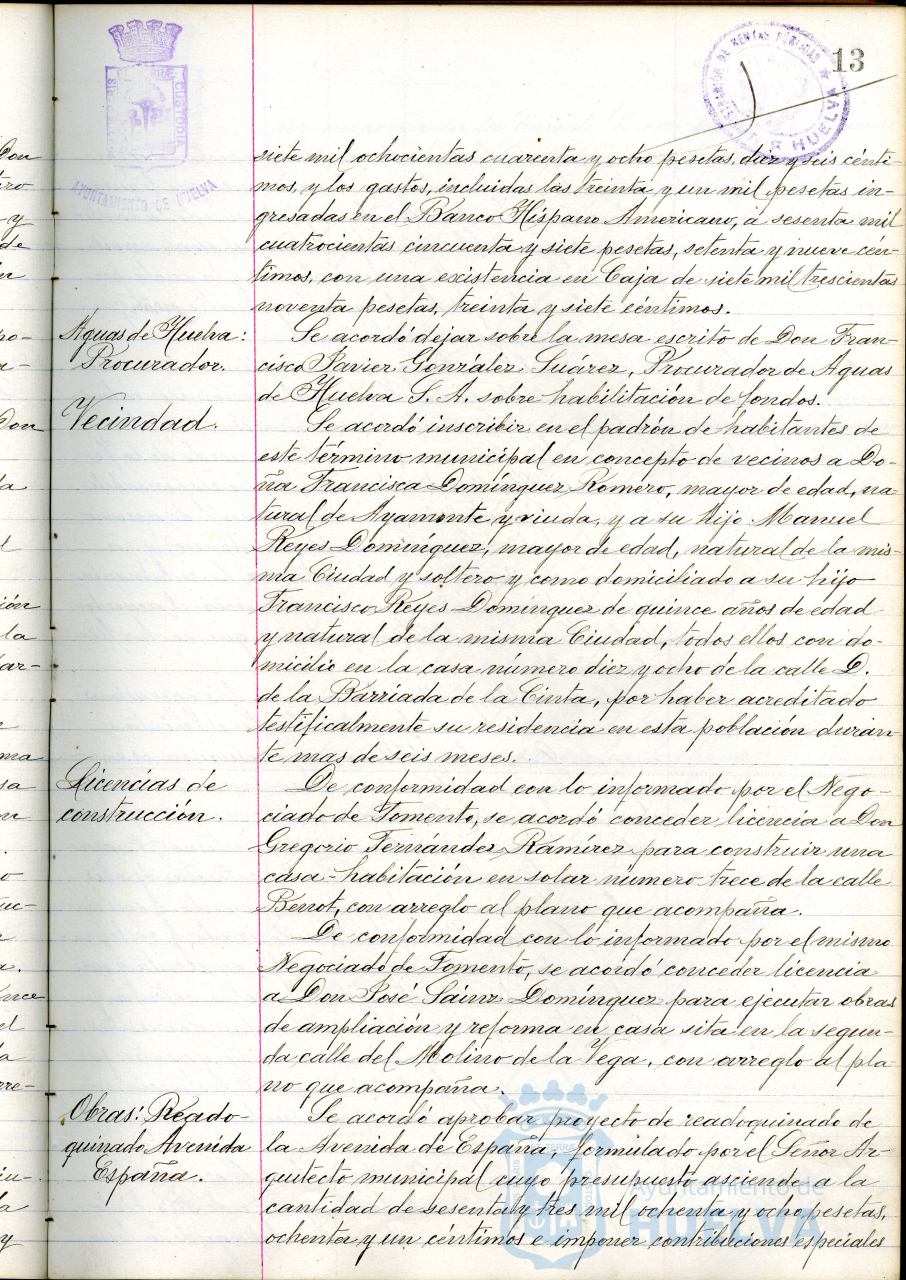 13
AYUNTAMIENTO DE HUELVA
HUELVA
siete mil ochocientas cuarenta y ocho pesetas, diez y seis cénti-
mos, y los gastos, incluidas las treinta y un mil pesetas in-
gresadas en el Banco Hispano Americano, a sesenta mil
cuatrocientas cincuenta y siete pesetas, setenta y nueve cén-
timos, con una existencia en Caja de siete mil trescientas
noventa pesetas, treinta y siete céntimos.
Aguas de Huelva:
Procurador.
Se acordó dejar sobre la mesa escrito de Don Fran-
cisco Javier González Suárez, Procurador de Aguas
de Huelva S. A. sobre habilitación de fondos.
Vecindad.
Se acordó inscribir en el padrón de habitantes de
este término municipal en concepto de vecinos a Do-
ña Francisca Domínguez Romero, mayor de edad, na-
tural de Ayamonte y viuda, y a su hijo Manuel
Reyes Domínguez, mayor de edad, natural de la mis-
ma Ciudad y soltero y como domiciliado a su hijo
Francisco Reyes Domínguez de quince años de edad
y natural de la misma Ciudad, todos ellos con do-
micilio en la casa número diez y ocho de la calle D.
de la Barriada de la Cinta, por haber acreditado
testificalmente su residencia en esta población duran-
te mas de seis meses.
Licencias de
construcción.
De conformidad con lo informado por el Nego-
ciado de Fomento, se acordó conceder licencia a Don
Gregorio Fernández Ramírez para construir una
casa-habitación en solar número trece de la calle
Berrot, con arreglo al plano que acompaña.
De conformidad con lo informado por el mismo
Negociado de Fomento, se acordó conceder licencia
a Don José Sáinz Domínguez para ejecutar obras
de ampliación y reforma en casa sita en la segun-
da calle del Molino de la Vega, con arreglo al pla-
no que acompaña.
Obras: Reado-
quinado Avenida
España.
Se acordó aprobar proyecto de readoquinado de
la Avenida de España, formulado por el Señor Ar-
quitecto municipal cuyo presupuesto asciende a la
cantidad de sesenta y tres mil ochenta y ocho pesetas,
ochenta y un céntimos e imponer contribuciones especiales
Ayuntamiento de
HUELVA